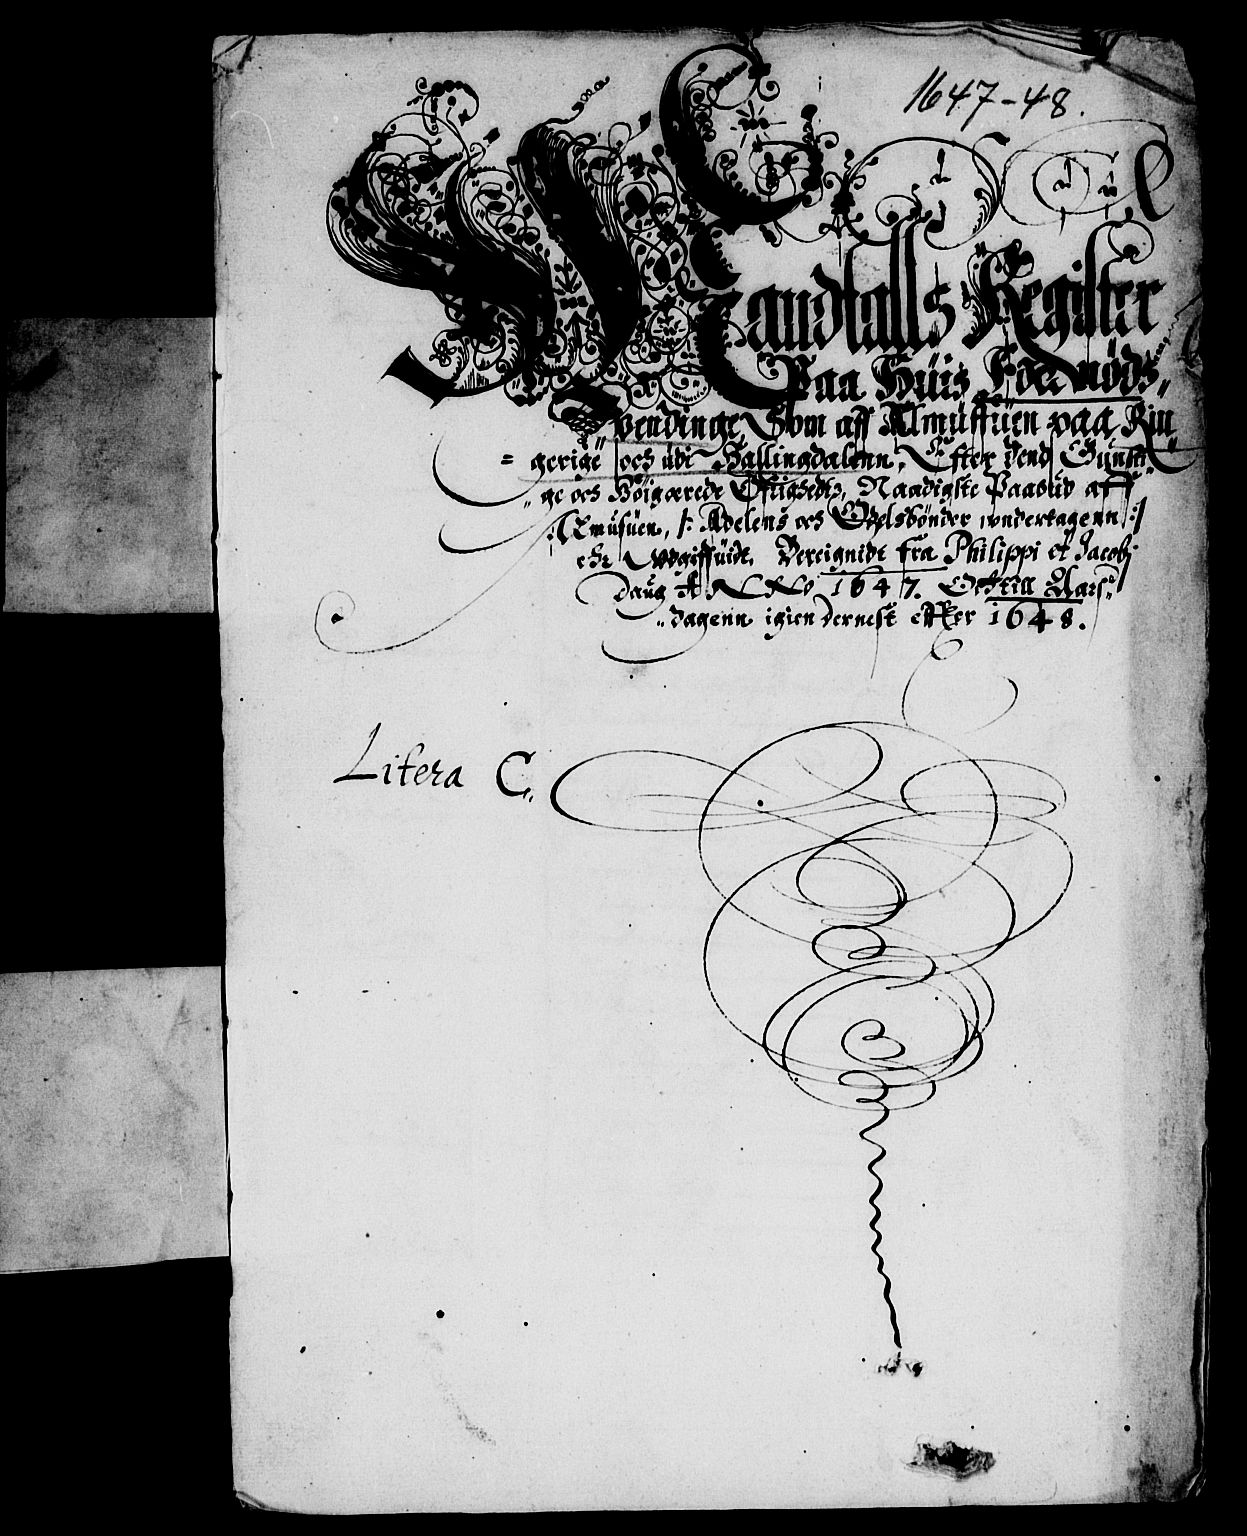 1647-48.
Mandtalls Register
Paa Huis Foernöds„
pendinge Som aff Almuffuen paa Rin„
„gerige och udi Hallingdalenn, Effter dend Gunsti„
„ge och Höigærede Öfrighedtz, Naadigste Paabud aff
Almufuen, /: Adelens och Odelsbönder undertagenn :/
ehr Udgiffuidt, Bereignidt fra Philippi et Jacobj
Daug Anno 1647. Och till Aars„
„dagenn igien dernest effter 1648.
Litera C.